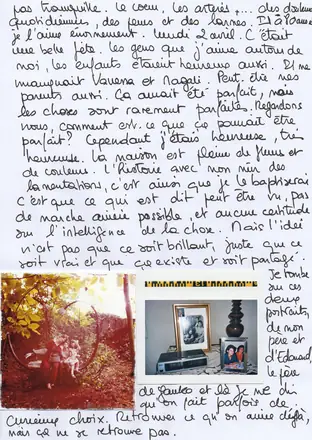 pas tranquille. Le coeur, les artères, ... des douleurs
quotidiennes, des peurs et des larmes. Et à 80 ans
je l'aime énormément. Lundi 2 avril. C'était
une belle fête. Les gens que j'aime autour de
moi, les enfants étaient heureux aussi. Il me
manquait Vanessa et Magali. Peut-être mes
parents aussi. Ça aurait été parfait, mais
les choses sont rarement parfaites. Regardons
nous, comment est-ce que ça pourrait être
parfait? Cependant j'étais heureuse, très
heureuse. La maison est pleine de fleurs et
de couleurs. L'histoire avec mon mur des
lamentations, c'est ainsi que je le baptiserai
c'est que ce qui est dit peut être vu, pas
de marche arrière possible, et aucune certitude
sur l'intelligence de la chose. Mais l'idée
n'est pas que ce soit brillant, juste que ce
soit vrai et que ça existe et soit partagé.
Je tombe
sur ces
deux
portraits,
de mon
père et
d'Edouard,
le père
de et là je me dis
qu'on fait parfois de
curieux choix. Retrouver ce qu'on aime déjà,
mais ça ne se retrouve pas.